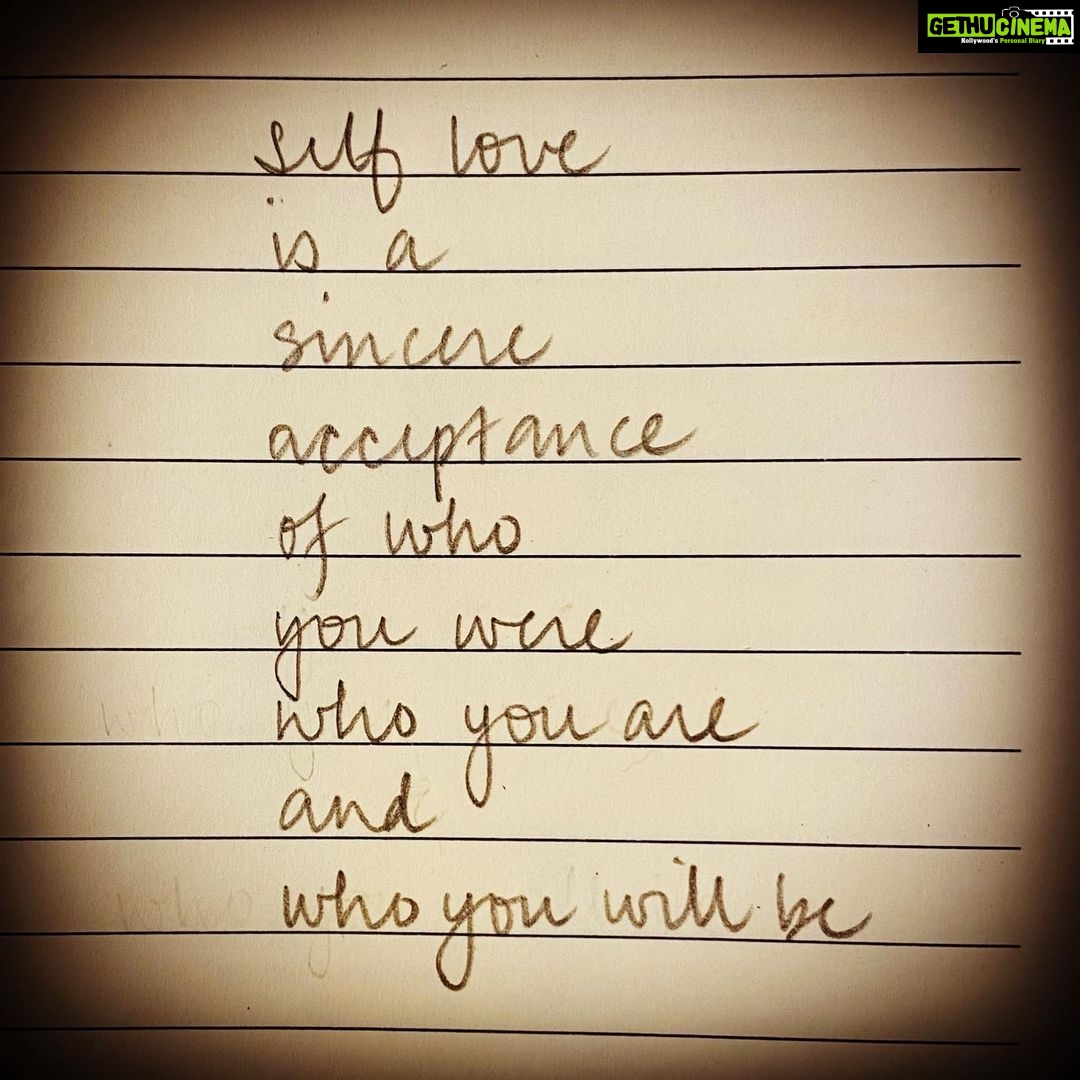 GETHUCINEMA
Kollywood's Personal Diary
self love
is a
sincere
acceptance
of who
you were
who you are
and
who you will be